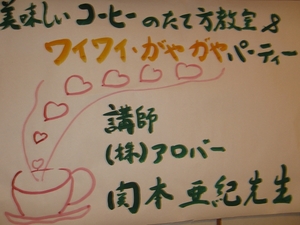 美味しいコーヒーのたて方教室&
ワイワイ・がやがやパーティー
講師
(株)アロバー
関本亜紀先生